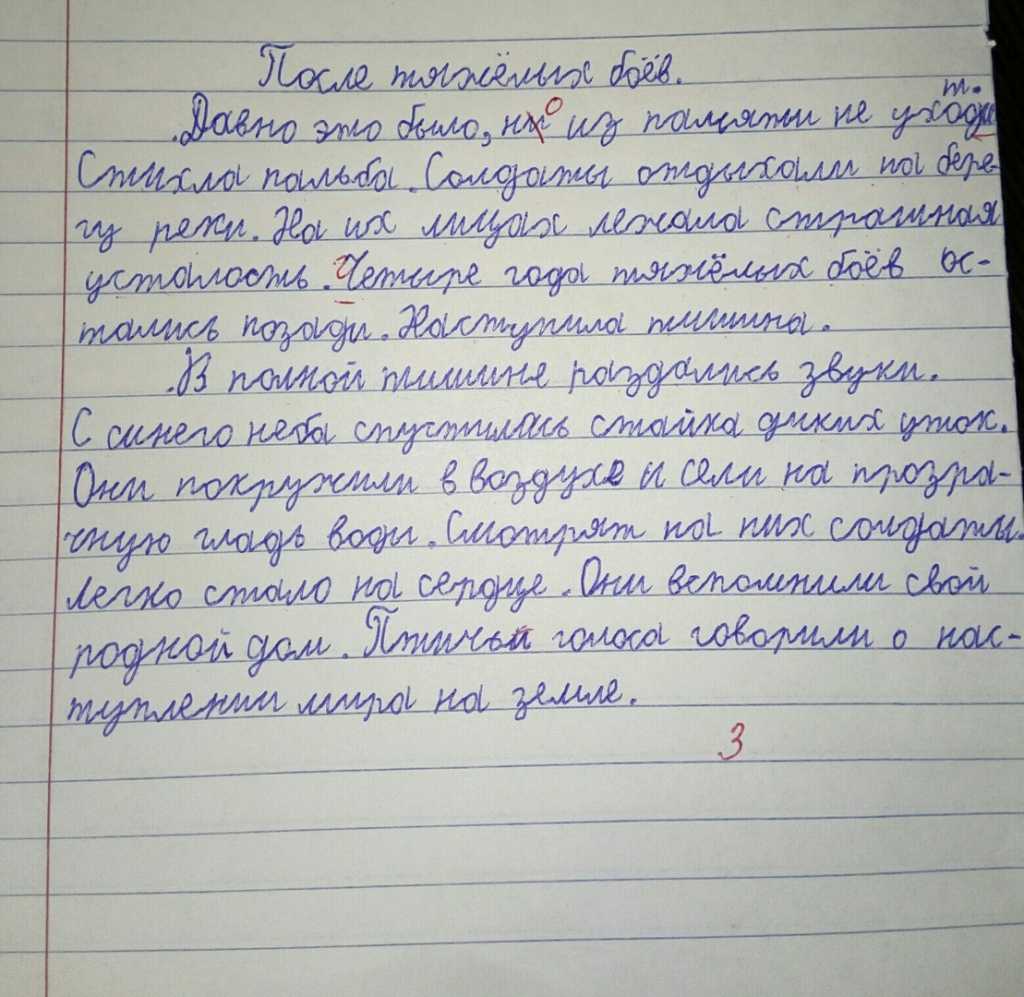 После тяжёлых боёв.
Давно это было, но из памяти не уходит.
Стихла пальба. Солдаты отдыхали на бере-
гу реки. На их лицах лежала страшная
усталость. Четыре года тяжёлых боёв ос-
тались позади. Наступила тишина.
В полной тишине раздались звуки.
С синего неба спустилась стайка диких уток.
Они покружили в воздухе и сели на прозра-
чную гладь воды. Смотрят на них солдаты.
легко стало на сердце. Они вспомнили свой
родной дом. Птичьи голоса говорили о нас-
туплении мира на земле.
3